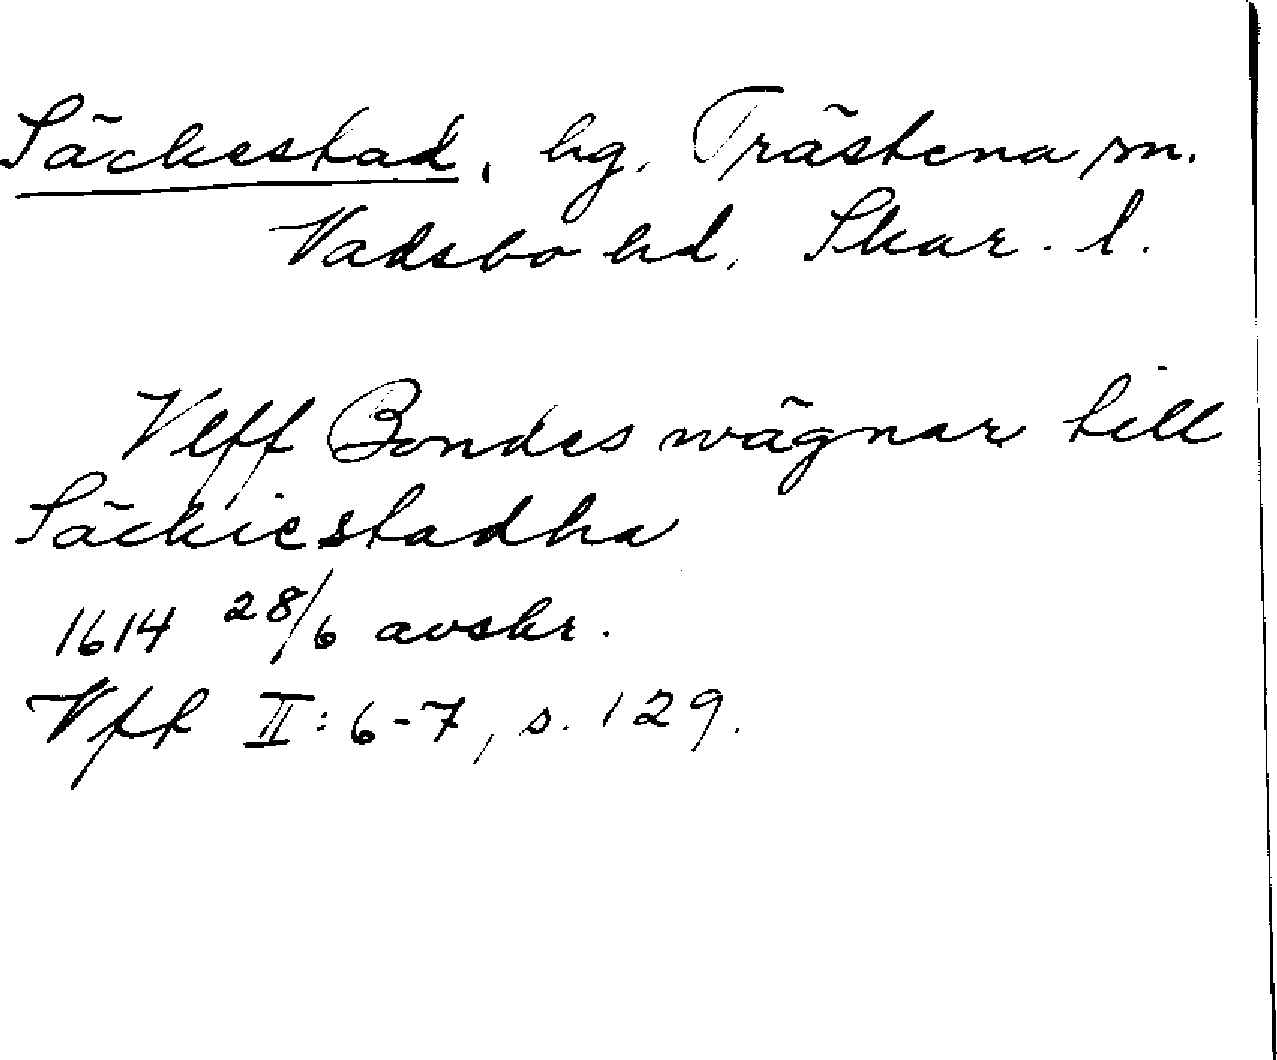 Säckestad, hg, Trästena sn.
Vadsbo hd, Skar. l.
Vlff Bondes wägnar till
Säckiestadha
1614 28/6 avskr.
Vff II:6-7, s. 129.